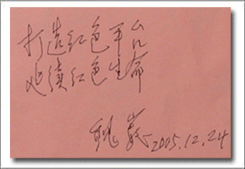 打造红色平台
延续红色生命
2005.12.24